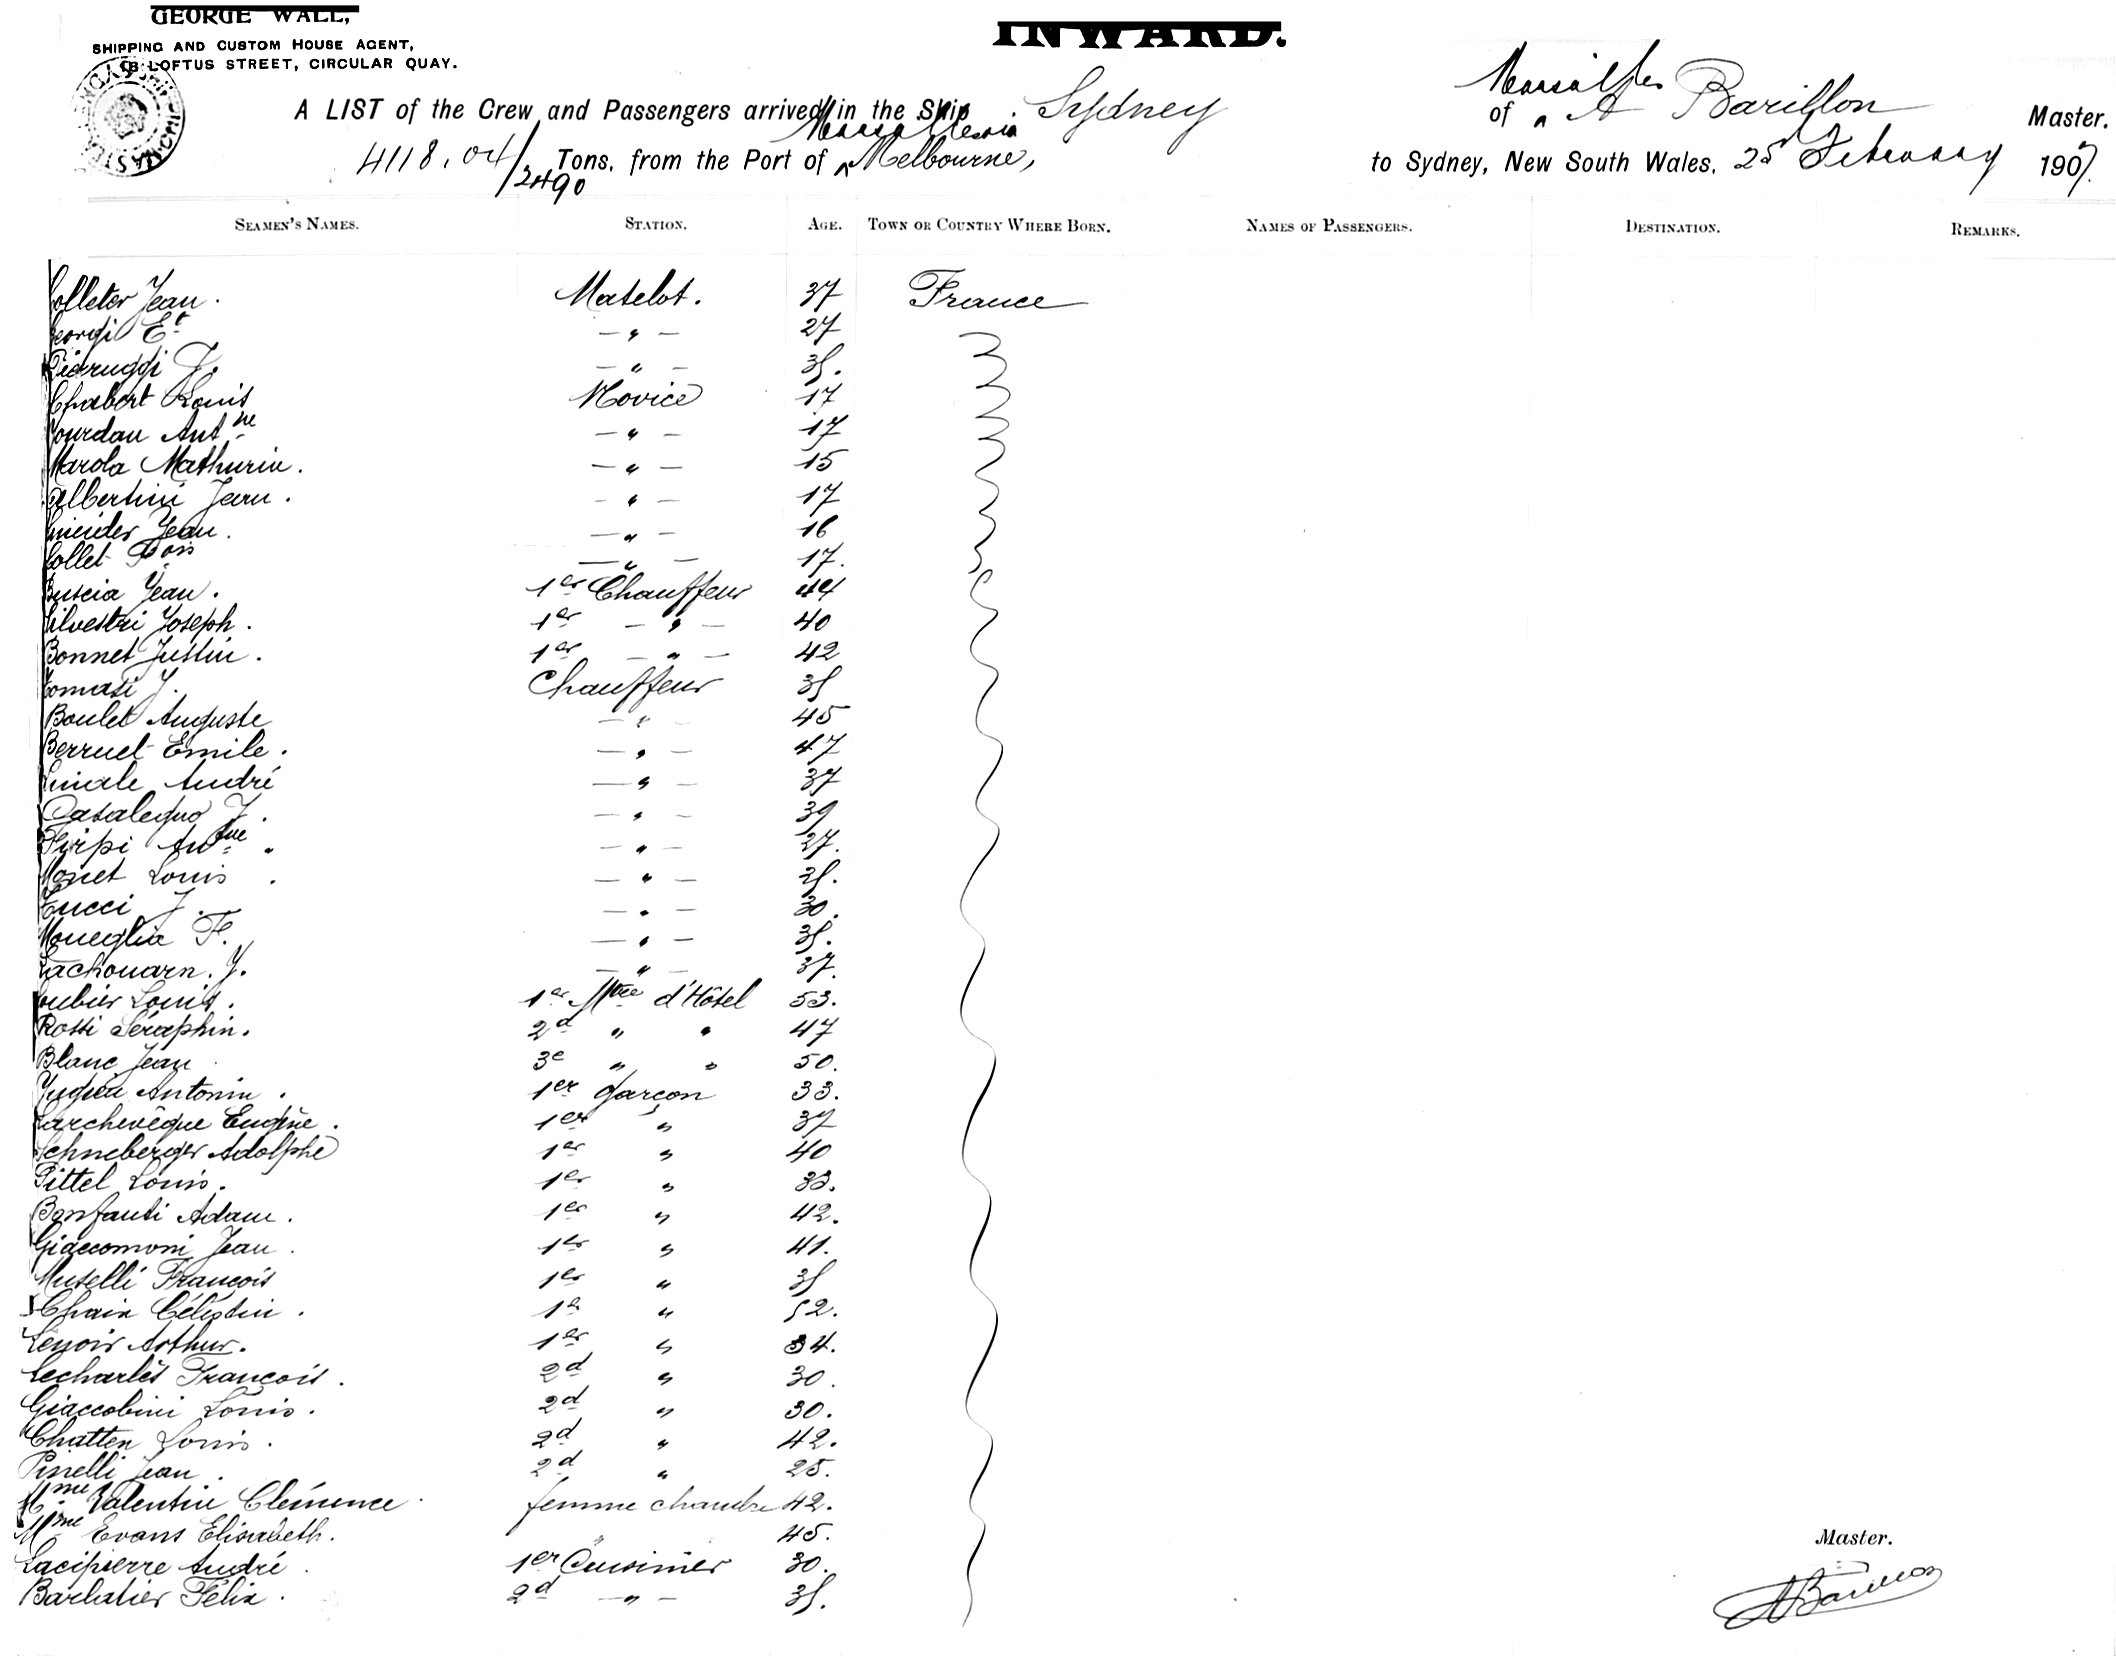 GEORGE WALL,
SHIPPING AND CUSTOM HOUSE AGENT,
LOFTUS STREET, CIRCULAR QUAY.
INWARD.
A LIST of the Crew and Passengers arrived in the Ship Sydney of Marseilles A Barillon Master.
4118.04/2490 Tons, from the Port of Melbourne, to Sydney, New South Wales, 25 February 1907.
SEAMEN'S NAMES. STATION. AGE. TOWN OR COUNTRY WHERE BORN. NAMES OF PASSENGERS. DESTINATION. REMARKS.
Colleter Jean. Matelot. 37 France
Georgi Et — " — 27
Pierruggi J. — " — 35.
Chabert Louis Novice 17
Jourdan Antne — " — 17
Marola Mathurin. — " — 15
Albertini Jean. — " — 17
Jean. — " — 16
Collet Fois — " — 17.
Jean. 1er Chauffeur 44
Silvestri Joseph. 1er — " — 40
Bonnet Justin. 1er — " — 42
Tomasi J. Chauffeur 35
Boulet Auguste — " — 45
Berruet Emile. — " — 47
André — " — 37
Casalegno J. — " — 39
Antne. — " — 27.
Monet Louis. — " — 25.
Tucci J. — " — 30.
Moneglia F. — " — 35.
Lachouarn. Y. — " — 37.
Loubier Louis. 1er Mtre d'Hôtel 53.
Rossi Séraphin. 2d " " 47
Blanc Jean 3e " " 50.
Antonin. 1er Garçon 33.
Larchevêque Eugène. 1er " 37
Schneberger Adolphe 1er " 40
Pittel Louis. 1er " 33.
Bonfanti Adam. 1er " 42.
Giaccomoni Jean. 1er " 41.
Muselli François 1er " 35
Chaix Célestin. 1er " 52.
Lenoir Arthur. 1er " 34.
Lecharlès François. 2d " 30.
Giaccobini Louis. 2d " 30.
Chatten Louis. 2d " 42.
Pinelli Jean. 2d " 25.
Mme Valentin Clémence. femme chambre 42.
Mme Evans Elisabeth. " 45.
Lacipierre André. 1er Cuisinier 30.
Barbatier Félix. 2d — " — 35.
Master.
ABarillon